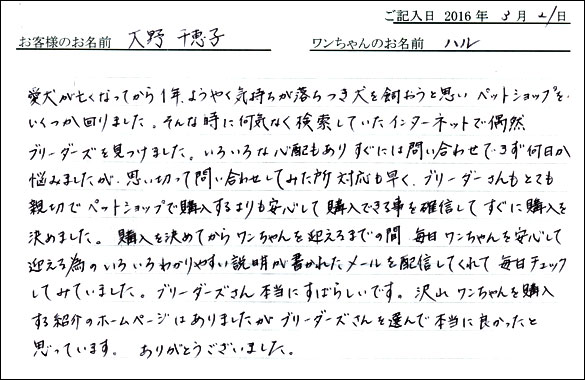 ご記入日 2016 年 3月 21日
お客様のお名前 天野 千恵子 ワンちゃんのお名前 ハル
愛犬が亡くなってから1年、ようやく気持ちが落ちつき犬を飼おうと思い ペットショップを
いくつか回りました。そんな時に何気なく検索していたインターネットで偶然
ブリーダーズを見つけました。いろいろな心配もあり すぐには問い合わせできず何日か
悩みましたが、思い切って問い合わせしてみた所 対応も早く、ブリーダーさんもとても
親切で ペットショップで購入するよりも安心して 購入できる事を確信して すぐに購入を
決めました。 購入を決めてから ワンちゃんを迎えるまでの間 毎日 ワンちゃんを安心して
迎える為の いろいろわかりやすい説明が書かれた メールを配信してくれて 毎日チェック
してみていました。ブリーダーズさん 本当にすばらしいです。沢山 ワンちゃんを購入
する紹介のホームページはありましたが ブリーダーズさんを選んで 本当に良かったと
思っています。 ありがとうございました。